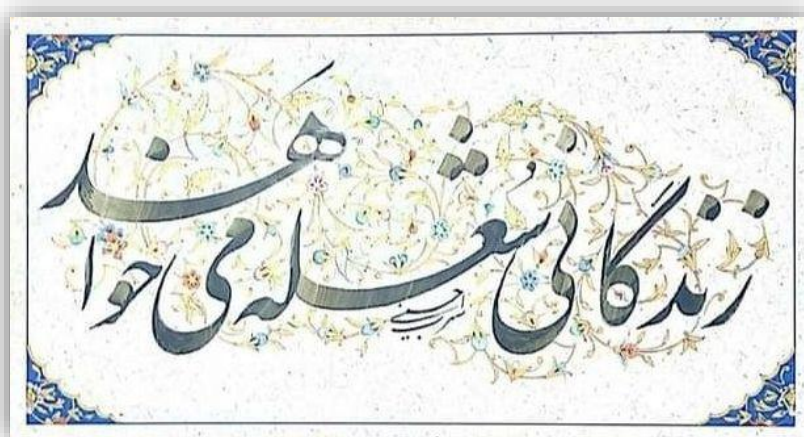 زندگانی شعله می خواهد